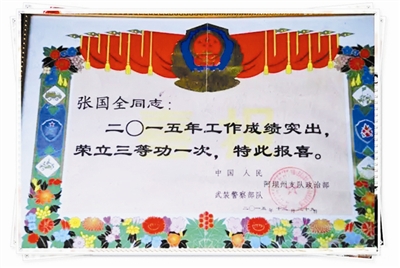 张国全同志：
二〇一五年工作成绩突出，
荣立三等功一次，特此报喜。
中国人民
武装警察部队 阿坝州支队政治部